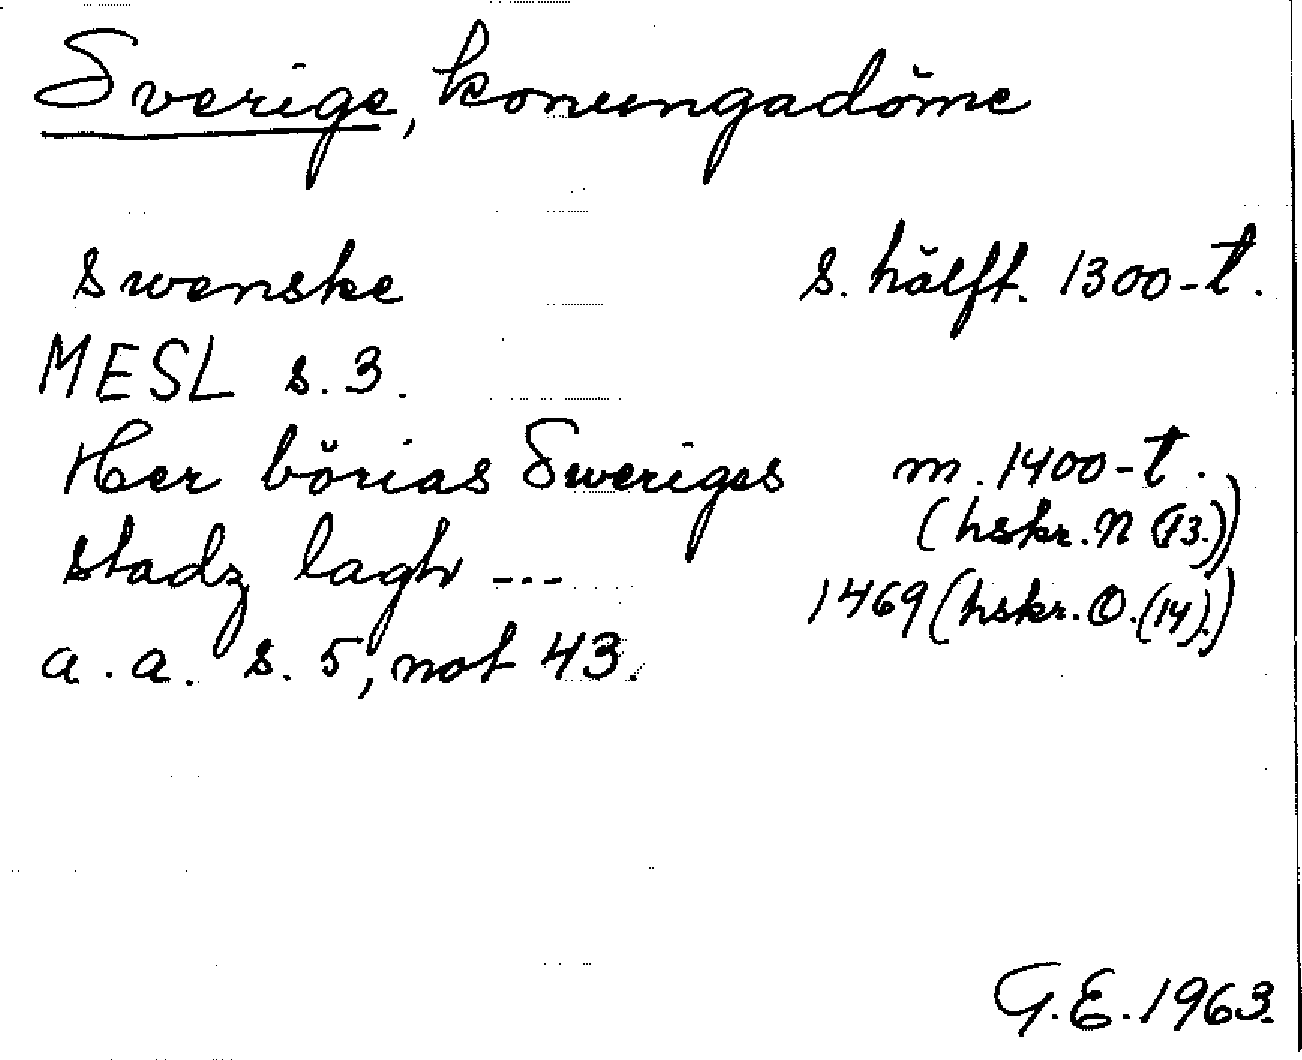 Sverige, konungadöme
swenske s. hälft. 1300-t.
MESL s. 3.
Her börias Sweriges m. 1400-t.
(hskr. N (13.))
stadz lagh ---
1469 (hskr. O. (14).)
a. a. s. 5, not 43.
G.E. 1963.